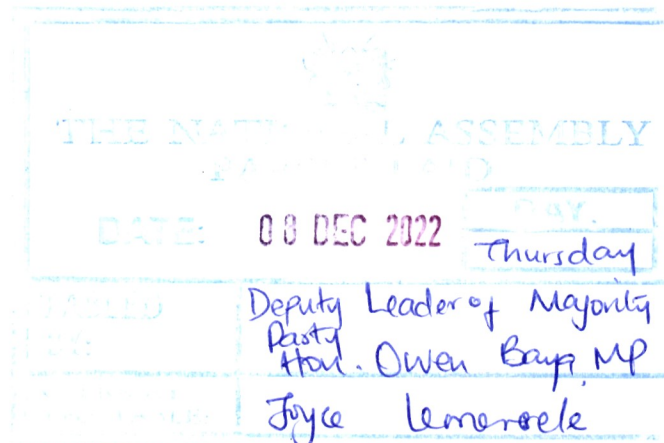 THE NATIONAL ASSEMBLY
PAPERS LAID
DATE: 08 DEC 2022
DAY.
Thursday
Deputy Leader of Majority
Party
Hon. Owen Baya, MP
BY:
Joyce Lemerele